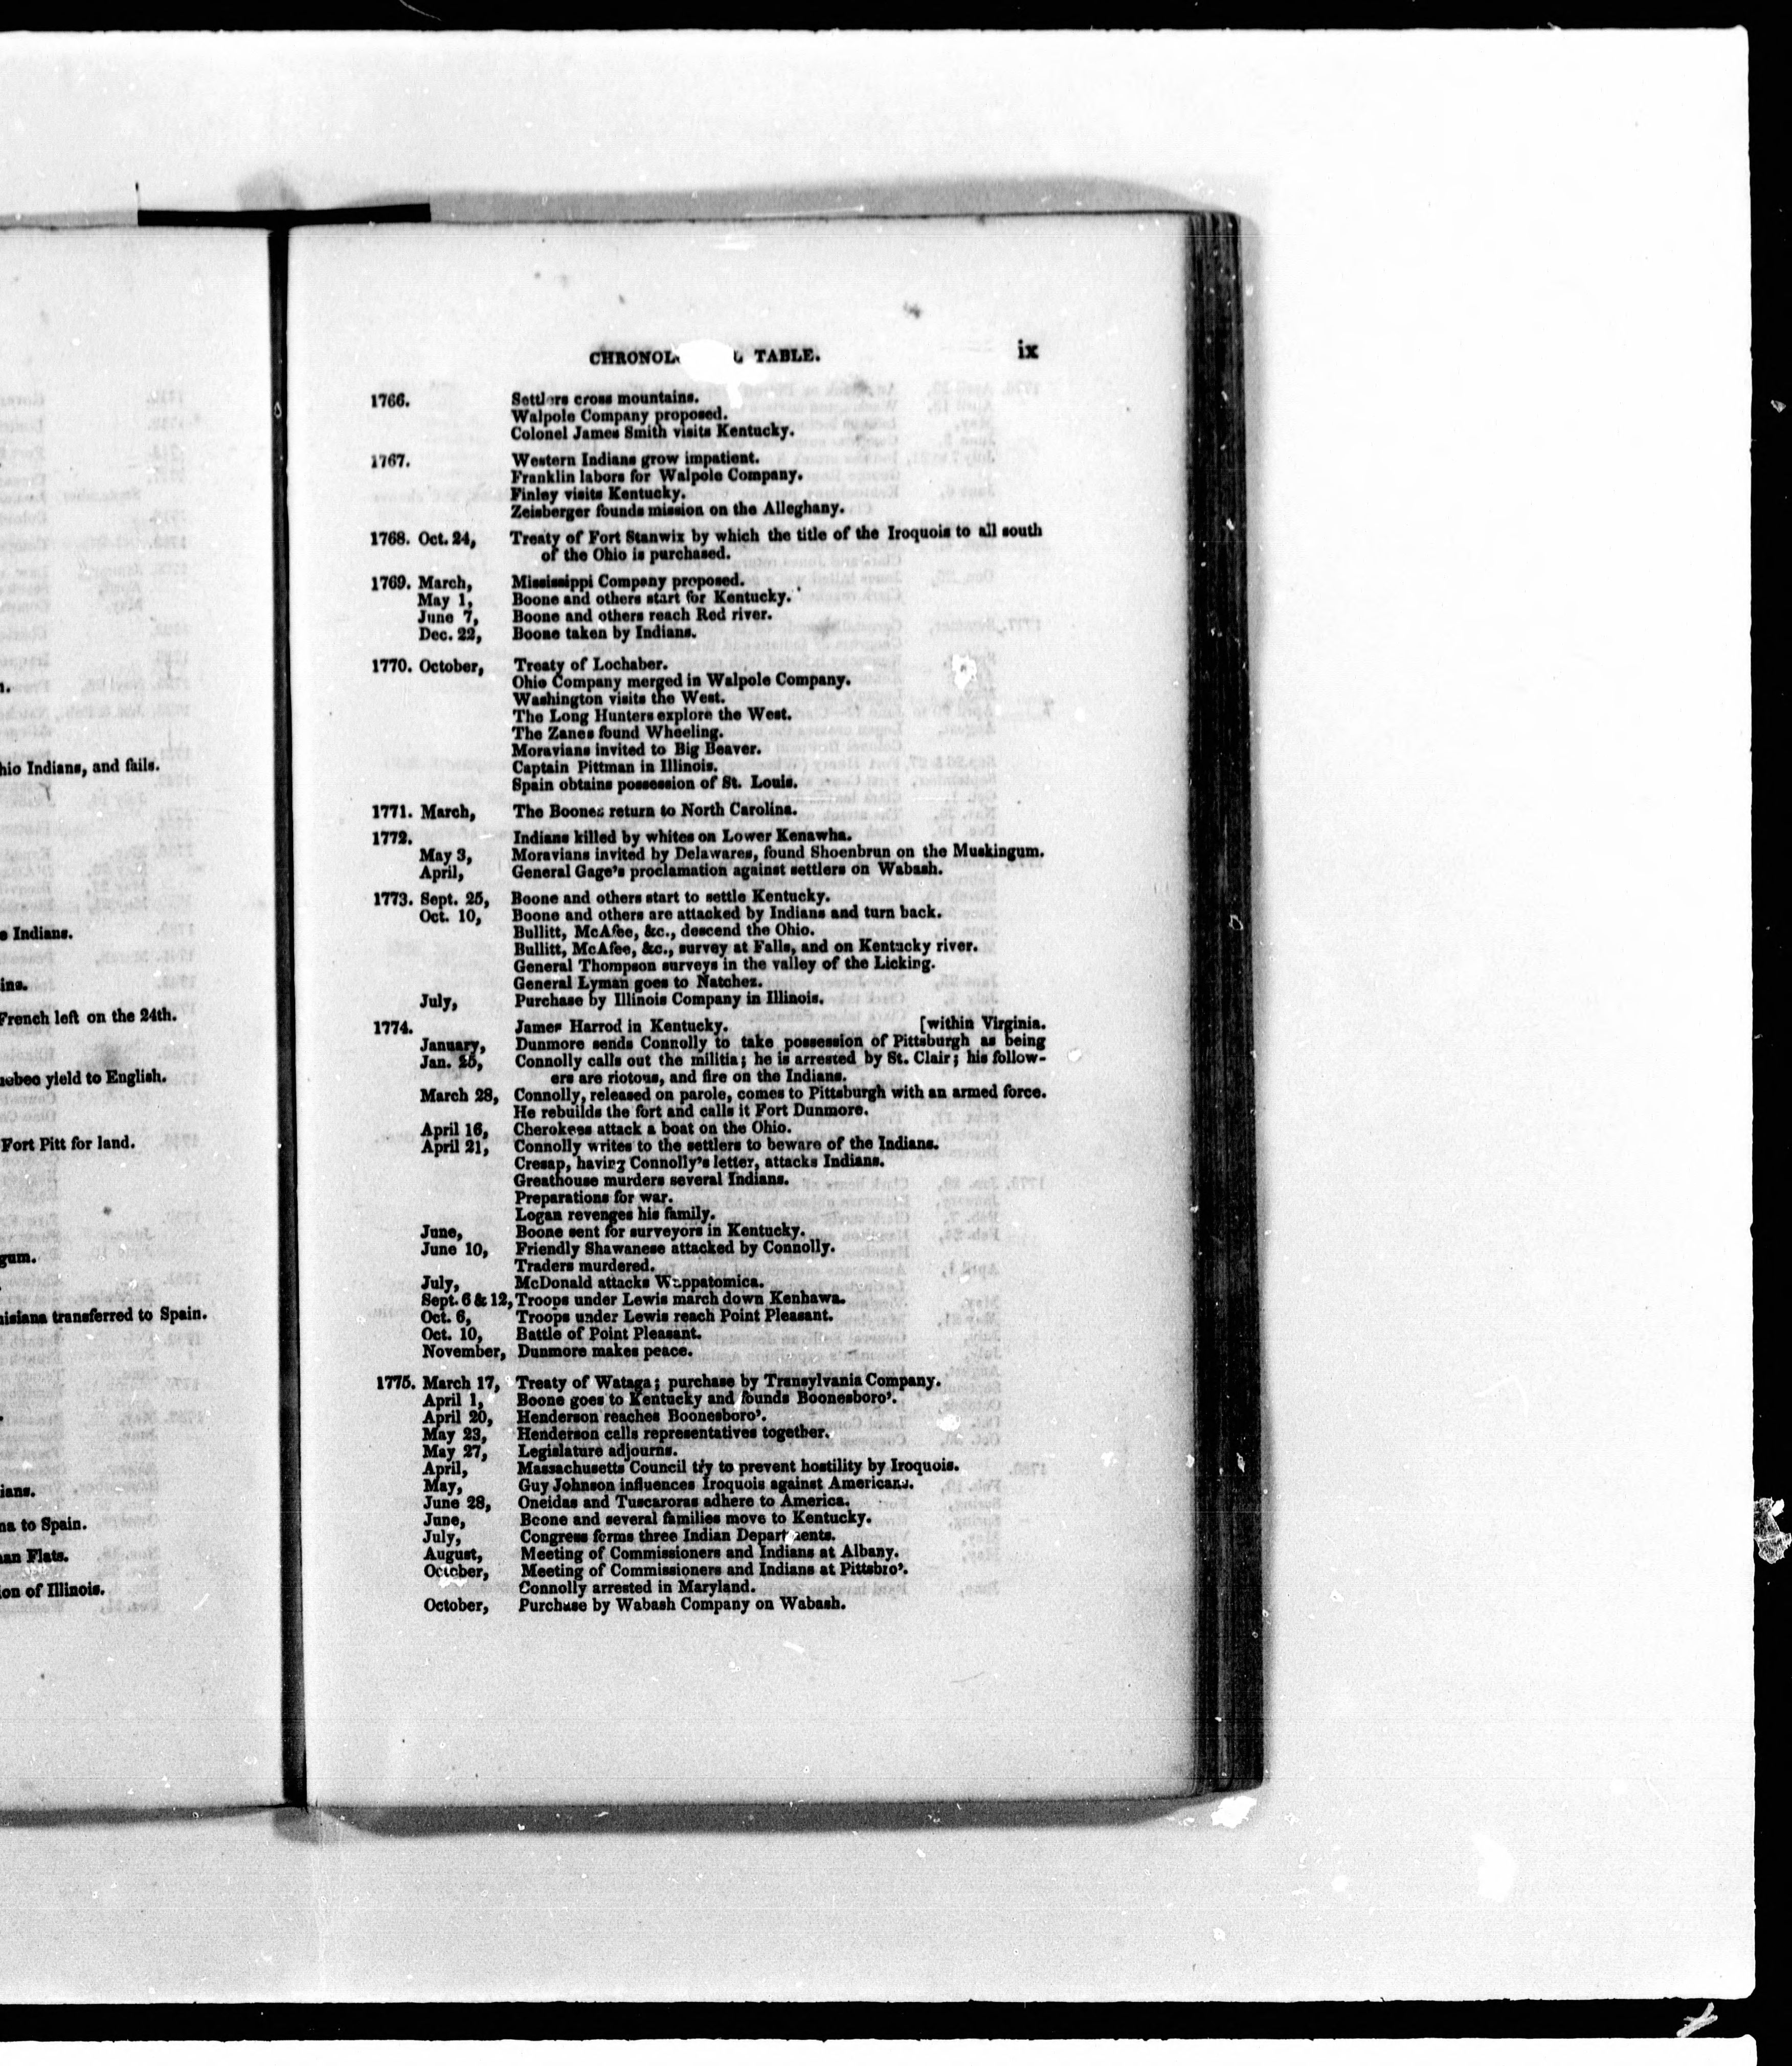 hio Indians, and fails.
s Indians.
ins.
French left on the 24th.
uebec yield to English.
Fort Pitt for land.
gum.
uisiana transferred to Spain.
ians.
na to Spain.
an Flats.
ion of Illinois.
CHRONOL TABLE. ix
1766. Settlers cross mountains.
Walpole Company proposed.
Colonel James Smith visits Kentucky.
1767. Western Indians grow impatient.
Franklin labors for Walpole Company.
Finley visits Kentucky.
Zeisberger founds mission on the Alleghany.
1768. Oct. 24, Treaty of Fort Stanwix by which the title of the Iroquois to all south
of the Ohio is purchased.
1769. March, Mississippi Company proposed.
May 1, Boone and others start for Kentucky.
June 7, Boone and others reach Red river.
Dec. 22, Boone taken by Indians.
1770. October, Treaty of Lochaber.
Ohio Company merged in Walpole Company.
Washington visits the West.
The Long Hunters explore the West.
The Zanes found Wheeling.
Moravians invited to Big Beaver.
Captain Pittman in Illinois.
Spain obtains possession of St. Louis.
1771. March, The Boones return to North Carolina.
1772. Indians killed by whites on Lower Kenawha.
May 3, Moravians invited by Delawares, found Shoenbrun on the Muskingum.
April, General Gage's proclamation against settlers on Wabash.
1773. Sept. 25, Boone and others start to settle Kentucky.
Oct. 10, Boone and others are attacked by Indians and turn back.
Bullitt, McAfee, &c., descend the Ohio.
Bullitt, McAfee, &c., survey at Falls, and on Kentucky river.
General Thompson surveys in the valley of the Licking.
General Lyman goes to Natchez.
July, Purchase by Illinois Company in Illinois.
1774. James Harrod in Kentucky. [within Virginia.
January, Dunmore sends Connolly to take possession of Pittsburgh as being
Jan. 25, Connolly calls out the militia; he is arrested by St. Clair; his follow-
ers are riotous, and fire on the Indians.
March 28, Connolly, released on parole, comes to Pittsburgh with an armed force.
He rebuilds the fort and calls it Fort Dunmore.
April 16, Cherokees attack a boat on the Ohio.
April 21, Connolly writes to the settlers to beware of the Indians.
Cresap, having Connolly's letter, attacks Indians.
Greathouse murders several Indians.
Preparations for war.
Logan revenges his family.
June, Boone sent for surveyors in Kentucky.
June 10, Friendly Shawanese attacked by Connolly.
Traders murdered.
July, McDonald attacks Wappatomica.
Sept. 6 & 12, Troops under Lewis march down Kenhawa.
Oct. 6, Troops under Lewis reach Point Pleasant.
Oct. 10, Battle of Point Pleasant.
November, Dunmore makes peace.
1775. March 17, Treaty of Wataga; purchase by Transylvania Company.
April 1, Boone goes to Kentucky and founds Boonesboro'.
April 20, Henderson reaches Boonesboro'.
May 23, Henderson calls representatives together.
May 27, Legislature adjourns.
April, Massachusetts Council try to prevent hostility by Iroquois.
May, Guy Johnson influences Iroquois against Americans.
June 28, Oneidas and Tuscaroras adhere to America.
June, Boone and several families move to Kentucky.
July, Congress forms three Indian Departments.
August, Meeting of Commissioners and Indians at Albany.
October, Meeting of Commissioners and Indians at Pittsbro'.
Connolly arrested in Maryland.
October, Purchase by Wabash Company on Wabash.